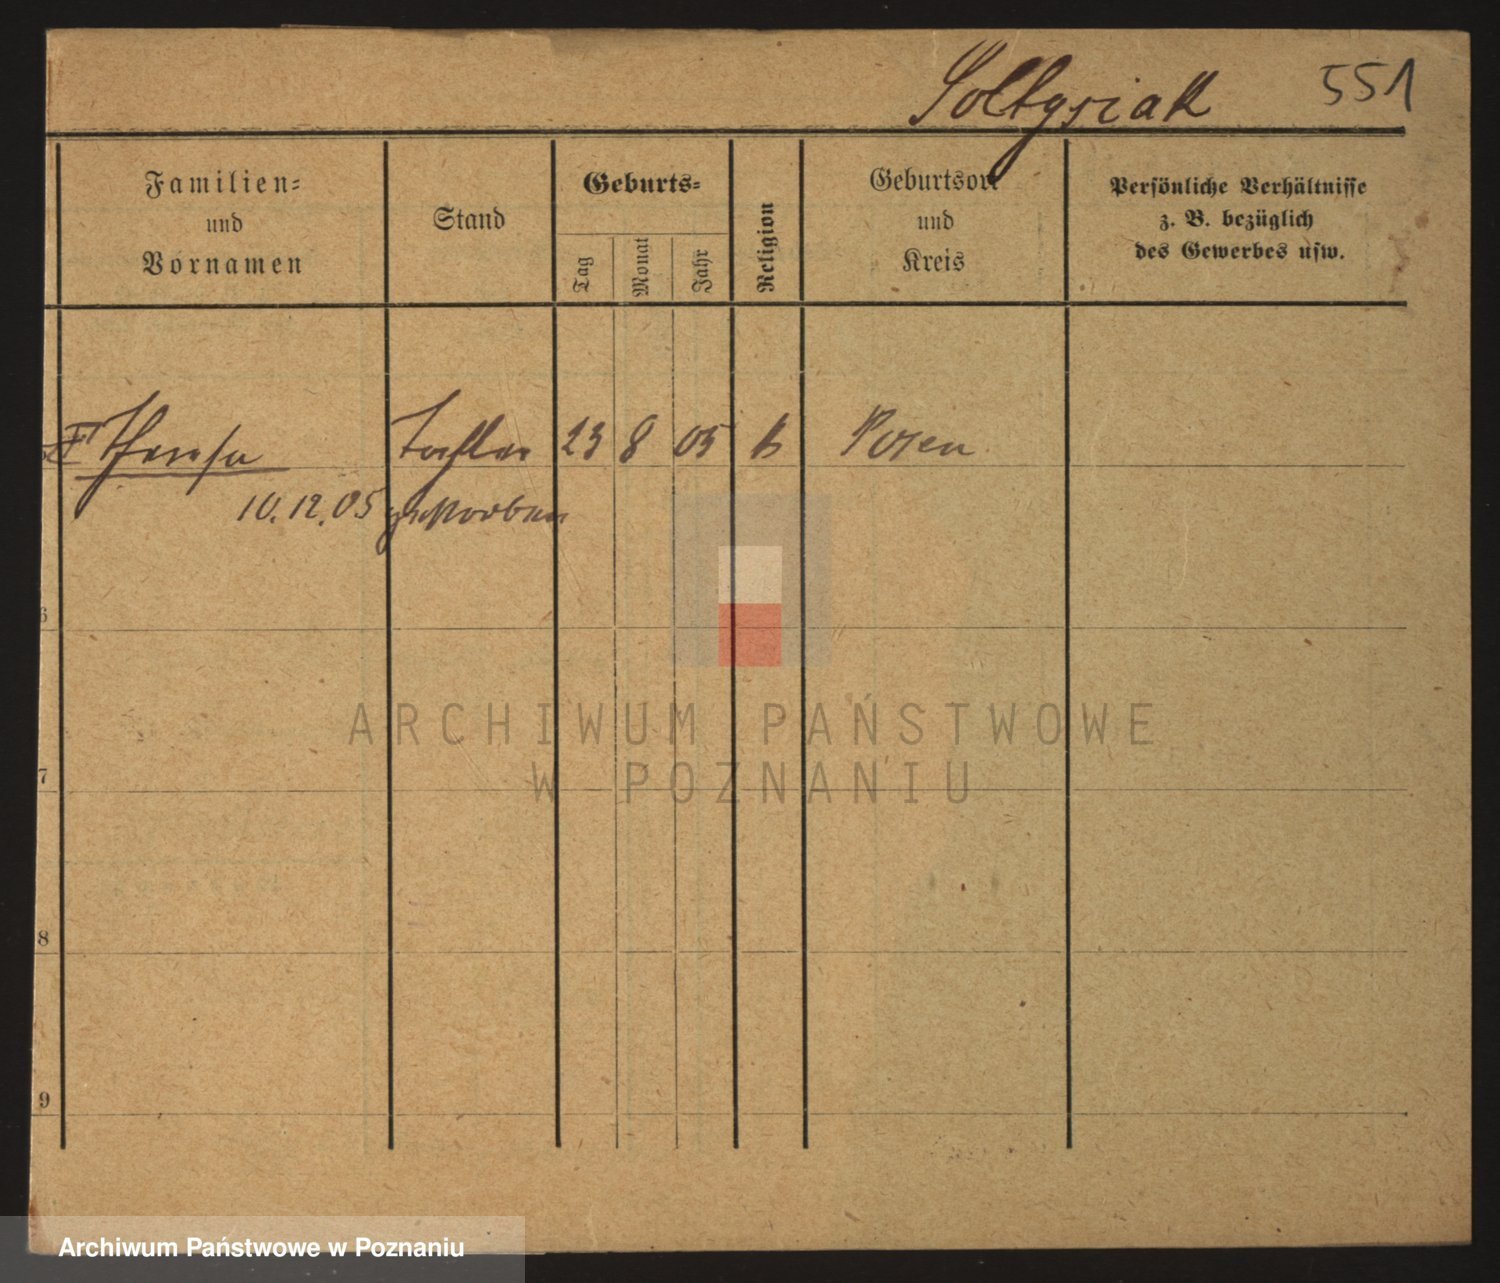 Soltysiak 551
Familien=
und
Vornamen
Stand
Geburts=
Tag
Monat
Jahr
Religion
Geburtsort
und
Kreis
Persönliche Verhältnisse
z. B. bezüglich
des Gewerbes usw.
Theresa Tochter 23 8 05 k Posen
10.12.05 gestorben
6
7
8
9
ARCHIWUM PAŃSTWOWE
W POZNANIU
Archiwum Państwowe w Poznaniu